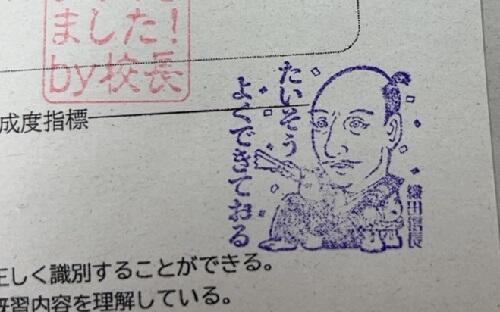 ました!
by校長
成度指標
たいそう
よくできておる
織田信長
正しく識別することができる。
既習内容を理解している。